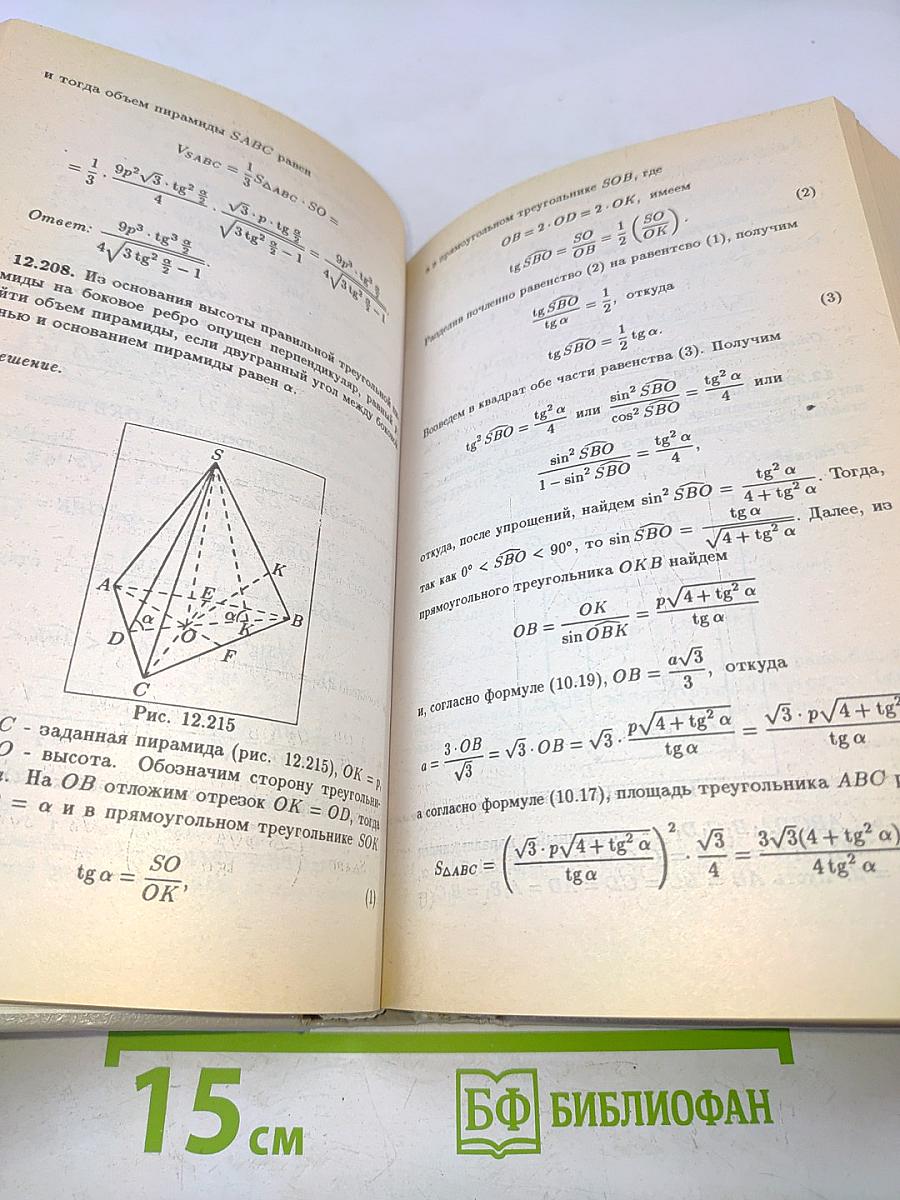 и тогда объем пирамиды SABC равен
V_{SABC} = \frac{1}{3} S_{\triangle ABC} \cdot SO =
= \frac{1}{3} \cdot \frac{9p^2\sqrt{3} \cdot tg^2 \frac{α}{2}}{4} \cdot \frac{\sqrt{3} \cdot p \cdot tg \frac{α}{2}}{\sqrt{3 tg^2 \frac{α}{2} - 1}} = \frac{9p^3 \cdot tg^3 \frac{α}{2}}{4\sqrt{3 tg^2 \frac{α}{2} - 1}}.
Ответ: \frac{9p^3 \cdot tg^3 \frac{α}{2}}{4\sqrt{3 tg^2 \frac{α}{2} - 1}}.
12.208. Из основания высоты правильной треугольной
миды на боковое ребро опущен перпендикуляр, равный
йти объем пирамиды, если двугранный угол между боковой
нью и основанием пирамиды равен α.
ешение.
S
A
E
K
D
α
O
α
K
B
F
C
Рис. 12.215
C - заданная пирамида (рис. 12.215), OK = p,
O - высота. Обозначим сторону треугольни-
. На OB отложим отрезок OK = OD, тогда
= α и в прямоугольном треугольнике SOK
tg α = \frac{SO}{OK}, (1)
а в прямоугольном треугольнике SOB, где
OB = 2 · OD = 2 · OK, имеем
tg \widehat{SBO} = \frac{SO}{OB} = \frac{1}{2} \left( \frac{SO}{OK} \right). (2)
Разделив почленно равенство (2) на равентсво (1), получим
\frac{tg \widehat{SBO}}{tg α} = \frac{1}{2}, откуда
tg \widehat{SBO} = \frac{1}{2} tg α. (3)
Возведем в квадрат обе части равенства (3). Получим
tg^2 \widehat{SBO} = \frac{tg^2 α}{4} или \frac{sin^2 \widehat{SBO}}{cos^2 \widehat{SBO}} = \frac{tg^2 α}{4} или
\frac{sin^2 \widehat{SBO}}{1 - sin^2 \widehat{SBO}} = \frac{tg^2 α}{4},
откуда, после упрощений, найдем sin^2 \widehat{SBO} = \frac{tg^2 α}{4 + tg^2 α}. Тогда,
так как 0° < \widehat{SBO} < 90°, то sin \widehat{SBO} = \frac{tg α}{\sqrt{4 + tg^2 α}}. Далее, из
прямоугольного треугольника OKB найдем
OB = \frac{OK}{sin \widehat{OBK}} = \frac{p\sqrt{4 + tg^2 α}}{tg α}
и, согласно формуле (10.19), OB = \frac{a\sqrt{3}}{3}, откуда
a = \frac{3 · OB}{\sqrt{3}} = \sqrt{3} · OB = \sqrt{3} · \frac{p\sqrt{4 + tg^2 α}}{tg α} = \frac{\sqrt{3} · p\sqrt{4 + tg^2}}{tg α}
а согласно формуле (10.17), площадь треугольника ABC р
S_{\triangle ABC} = \left( \frac{\sqrt{3} · p\sqrt{4 + tg^2 α}}{tg α} \right)^2 · \frac{\sqrt{3}}{4} = \frac{3\sqrt{3}(4 + tg^2 α)}{4 tg^2 α}
15 см
БФ БИБЛИОФАН